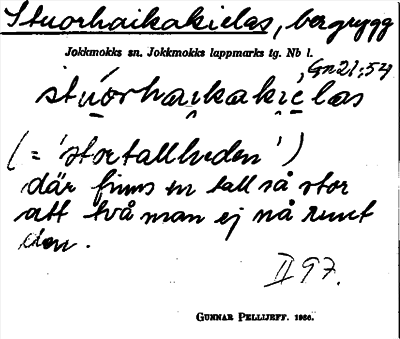 Stuorhaikakielas, bergrygg
Jokkmokks sn. Jokkmokks lappmarks tg. Nb l.
Gn21:54
stuorhaikakielas
(= 'stortallheden')
där finns en tall så stor
att två man ej nå runt
den.
II 97.
GUNNAR PELLIJEFF. 1966.